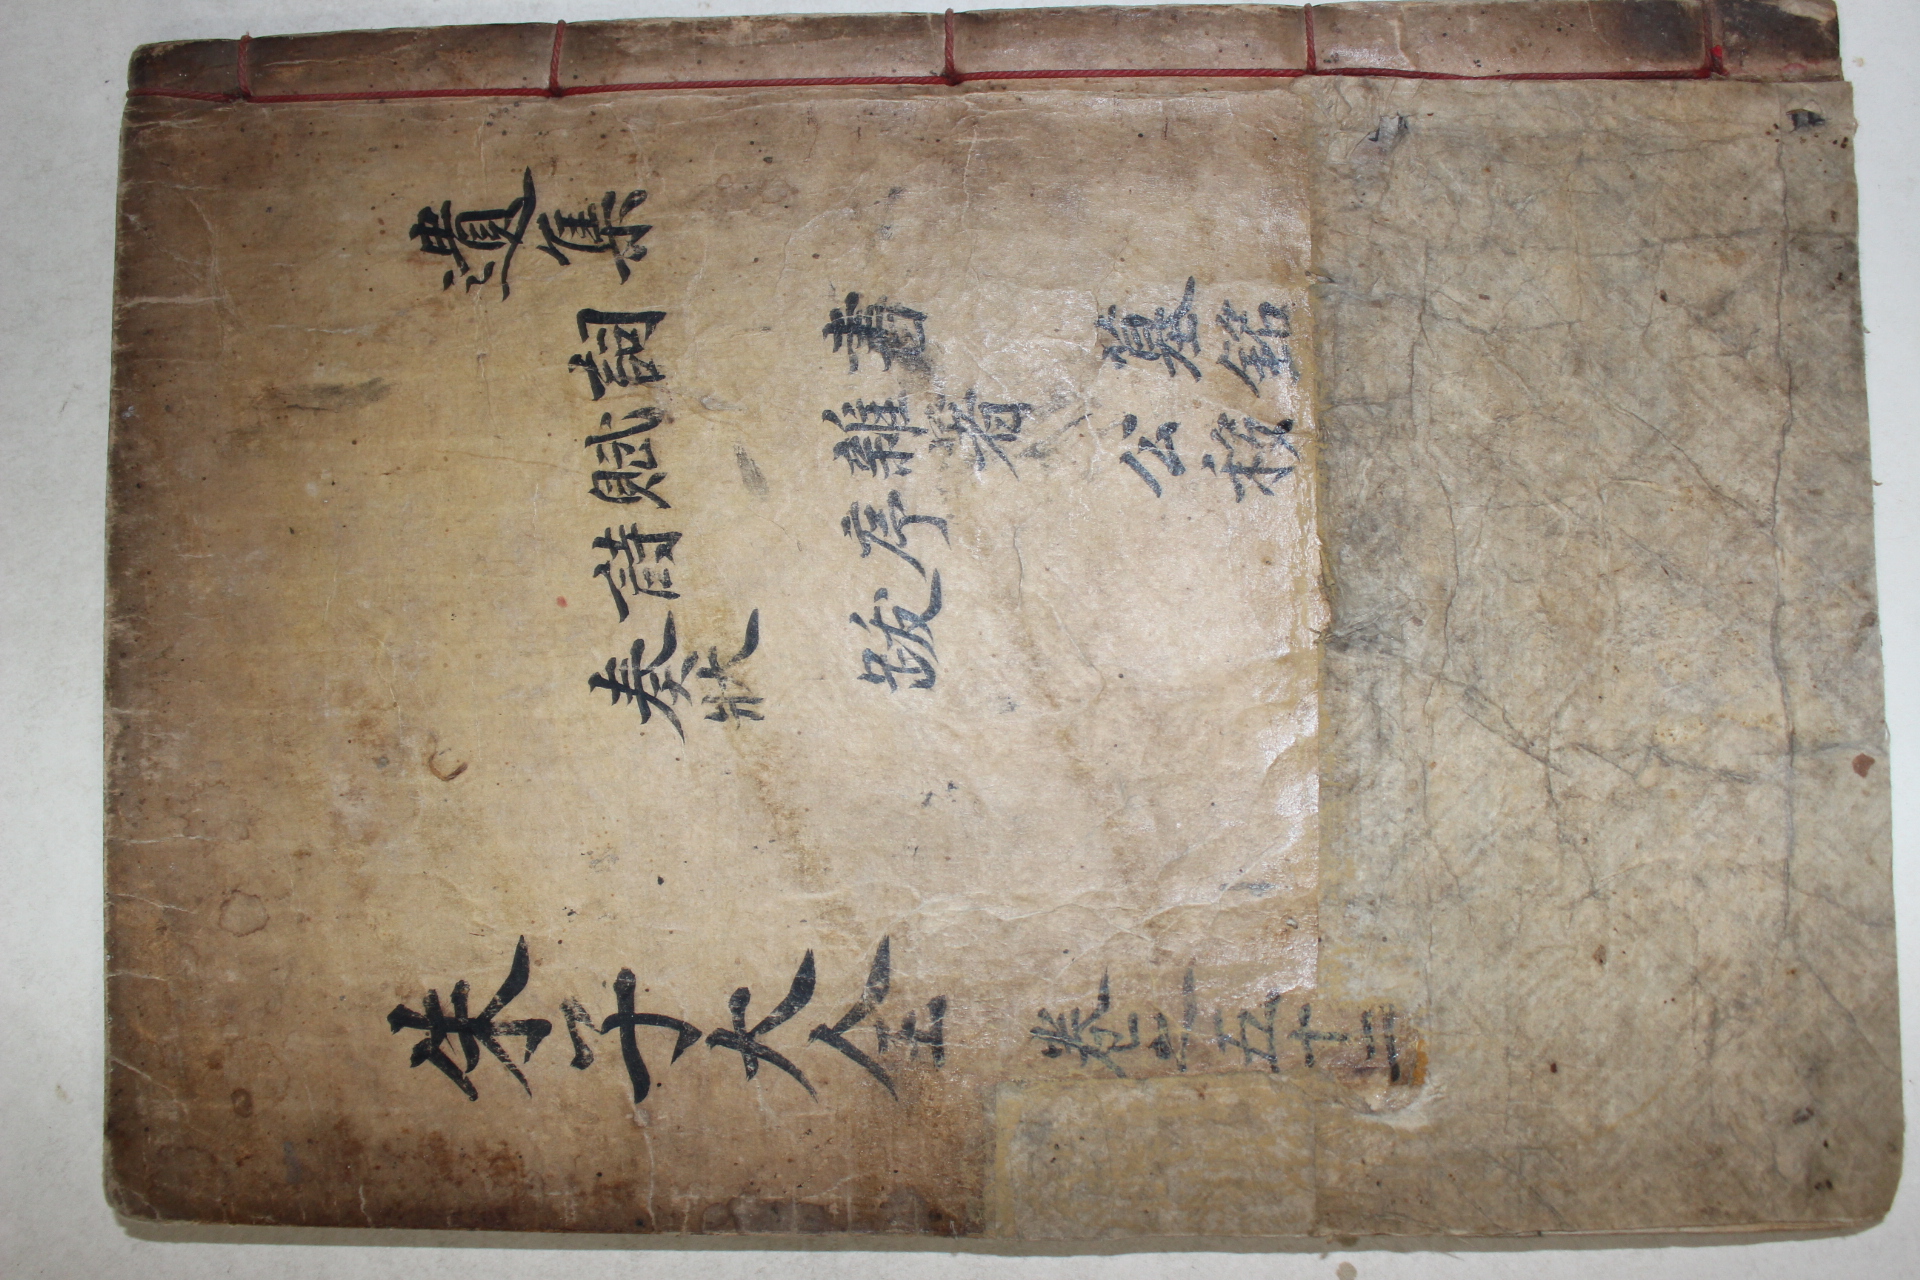 遺集
詞
賦
詩
奏狀
書
雜著
序
跋
墓銘
公移
朱子大全 卷之五十三